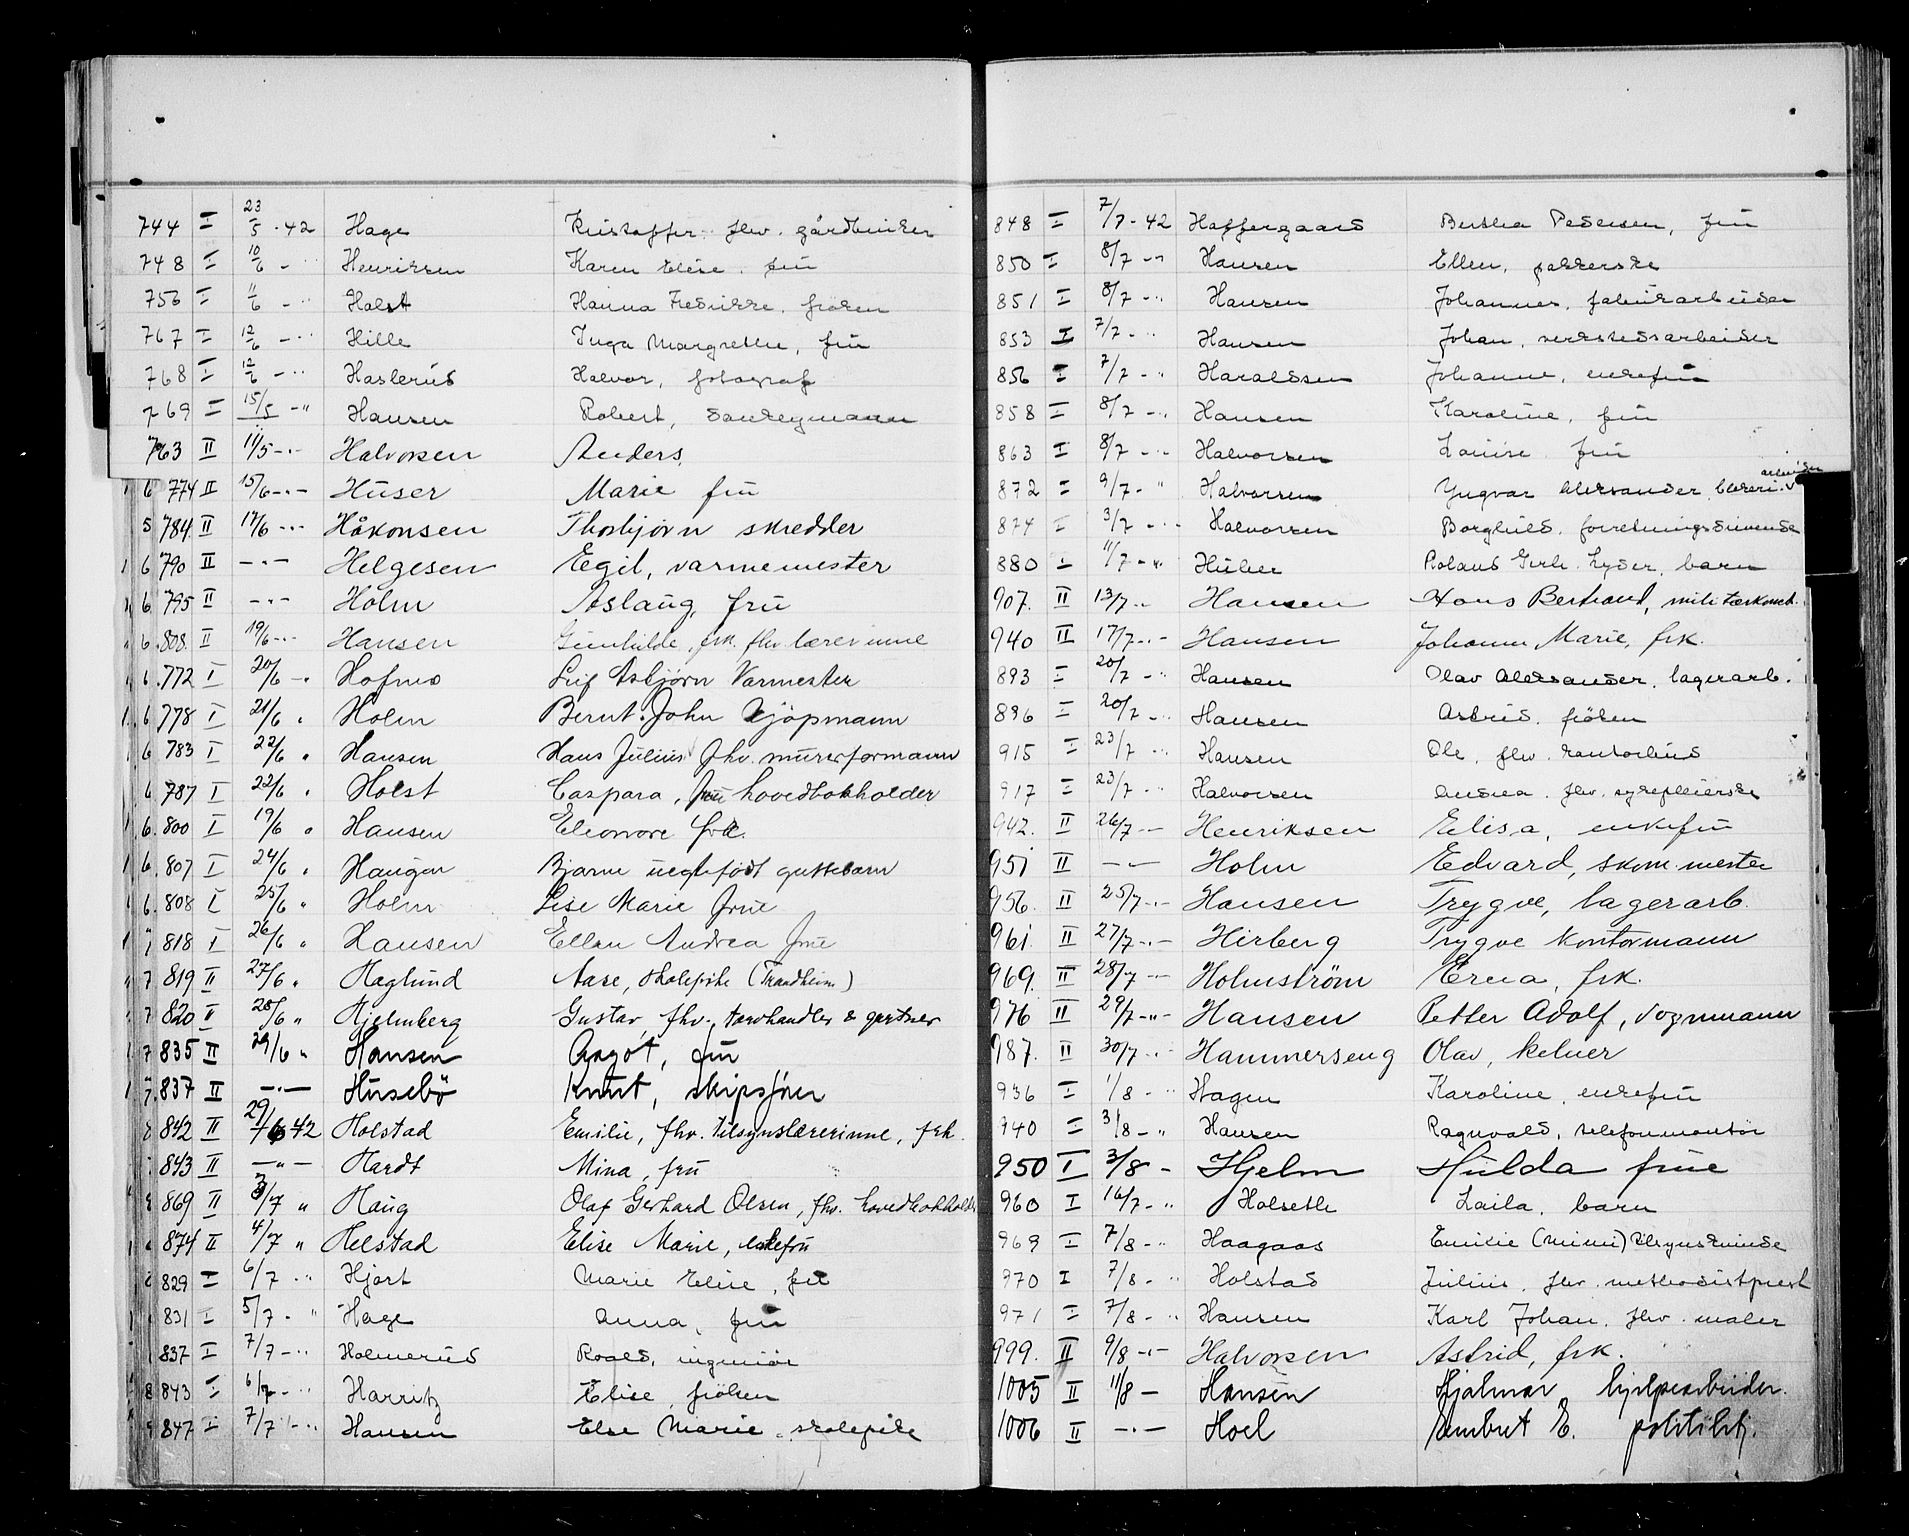 744 I 23/5 - 42 Hage Kristoffer fhv. gårdbruker
748 I 10/6 - " Henriksen Karen Elise fru
756 I 11/6 - " Holst Hanna Fredrikke, frøken
767 I 12/6 - " Hille Inga Margrethe, fru
768 I 12/6 - " Haslerud Halvor, fotograf
769 I 15/5 - " Hansen Robert,
763 II 11/5 - " - Halvorsen Anders,
774 II 15/6 - " - Huser Marie fru
784 II 17/6 - " - Håkonsen Thorbjørn skredder
790 II - " - Helgesen Egil, varmemester
795 II - " - Holm Aslaug, fru
808 II 19/6 - " - Hansen Gunhilde, frk. fhv. lærerinne
772 I 20/6 - " Hofmo Leif Asbjørn Varmester
778 I 21/6 " Holm Bernt John Kjøpmann
783 I 22/6 " Hansen Hans Julius fhv. murerformann
787 I 22/6 " Holst Caspara, fru hovedbokholder
800 I 19/6 " Hansen Eleonore frk.
807 I 24/6 " Haugan Bjarne uegtefødt guttebarn
808 I 25/6 " Holm Lise Marie Frue
818 I 26/6 " Hansen Ellen Andrea Frue
819 II 27/6 " Haglund Aase, skolepike (Trondheim)
820 II 28/6 " Hjelmberg Gustav, fhv. torvhandler & gartner
835 II 29/6 " Hansen Aagot, fru
837 II - " - Husebö Knut, skipsfører
842 II 29/6 42 Holstad Emilie, fhv. tilsynslærerinne, frk.
843 II - " - Hardt Mina, fru
869 II 3/7 " Haug Olaf Gerhard Olsen, fhv. hovedbokholder
874 II 4/7 " Helstad Elise Marie, enkefru
829 I 6/7 - " Hjort Marie Elise, fru
831 I 5/7 - " Hage Anna, fru
837 I 7/7 - " Holmerud Roald, ingeniør
843 I 6/7 - " Harritz Elise, frøken
847 I 7/7 - " Hansen Else Marie skolepike
848 I 7/7 - 42 Haffergaard Berthea Pedersen, fru
850 I 8/7 - " Hansen Ellen, pakkerske
851 I 8/7 - " Hansen Johannes, fabrikarbeider
853 I 7/7 - " Hansen Johan, verkstedsarbeider
856 I 7/7 - " Haraldsen Johanne, enkefru
858 I 8/7 - " Hansen Karoline, fru
863 I 8/7 - " Halvorsen Louise fru
arbeider
872 I 9/7 - " Halvorsen Yngvar Aleksander,
874 I 3/7 - " Halvorsen Borghild, forretningsdrivende
880 I 11/7 - " Huber Roland Gerh. Lyder, barn
907. II 13/7 - " Hansen Hans Bertrand,
940 II 17/7 - " - Hansen Johanne Marie, frk.
893 I 20/7 - " Hansen Olav Aleksander, lagerarb.
896 I 20/7 - " Hansen Astrid, frøken
915 I 23/7 - " Hansen Ole, fhv. kontorbud
917 I 23/7 - " Halvorsen Andrea, fhv. sykepleierske
942. II 26/7 - " Henriksen Elisa, enkefru
951 II - " - Holm Edvard, skom.mester
956. II 25/7 - " - Hansen Trygve, lagerarb.
961 II 27/7 - " - Hirberg Trygve Kontormann
969. II 28/7 - " Holmström Erna, frk.
976 II 29/7 - " - Hansen Petter Adolf, vognmann
987. II 30/7 - " Hammerseng Olav, kelner
936 I 1/8 - " Hagen Karoline, enkefru
940 I 3/8 - " Hansen Ragnvald, telefonmontør
950 I 3/8 - Hjelm Hulda frue
960 I 16/7 - " Holseth Laila, barn
969 I 7/8 - " Haagaas Emilie (Mimi) tilsynskvinde
970 I 7/8 - " Holstad Julius, fhv. methodistprest
971 I 7/8 - " Hansen Karl Johan, fhv. maler
999. II 9/8 - " - Halvorsen Astrid, frk.
1005 II 11/8 - Hansen Hjalmar hjelpearbeider.
1006 II - " - Hoel Embret E. politibtj.